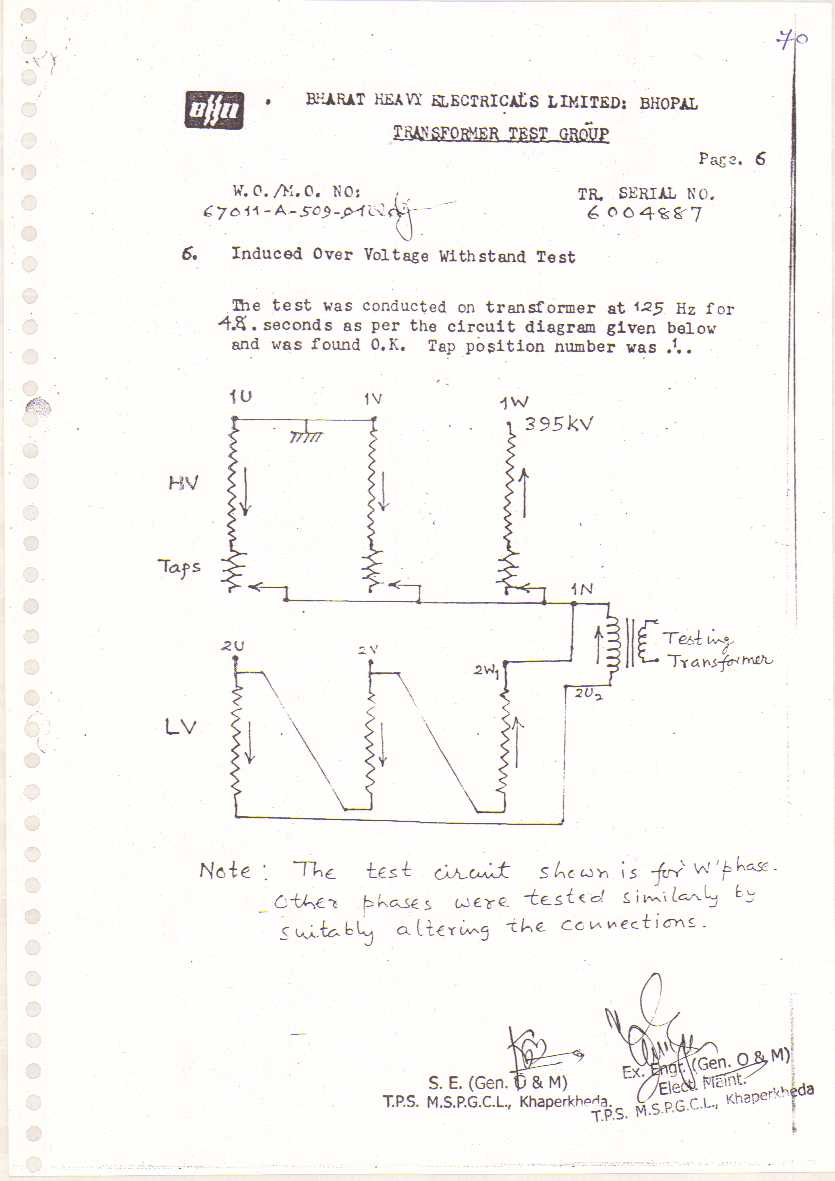 70
BHARAT HEAVY ELECTRICALS LIMITED: BHOPAL
TRANSFORMER TEST GROUP
Page. 6
W.O./M.O. NO:
67011-A-509-01
TR. SERIAL NO.
6004887
6. Induced Over Voltage Withstand Test
The test was conducted on transformer at 125 Hz for
48. seconds as per the circuit diagram given below
and was found O.K. Tap position number was .1..
1U 1V 1W
395kV
HV
Taps
1N
2U 2V 2W1
Testing
Transformer
2U2
LV
Note : The test circuit shown is for 'W' phase.
Other phases were tested similarly by
suitably altering the connections.
S. E. (Gen. O & M)
T.P.S. M.S.P.G.C.L., Khaperkheda.
Ex. Engr. (Gen. O & M)
Elect. Maint.
T.P.S. M.S.P.G.C.L., Khaperkheda